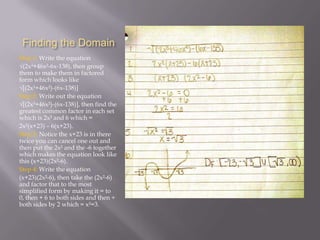 Finding the Domain
Step 1: Write the equation
√(2x³+46x²-6x-138), then group
them to make them in factored
form which looks like
√[(2x³+46x²)-(6x-138)]
Step 2: Write out the equation
√[(2x³+46x²)-(6x-138)], then find the
greatest common factor in each set
which is 2x² and 6 which =
2x²(x+23) – 6(x+23).
Step 3: Notice the x+23 is in there
twice you can cancel one out and
then put the 2x² and the -6 together
which makes the equation look like
this (x+23)(2x²-6).
Step 4: Write the equation
(x+23)(2x²-6), then take the (2x²-6)
and factor that to the most
simplified form by making it = to
0, then + 6 to both sides and then ÷
both sides by 2 which = x²=3.
1 √[(2x³+46x²)-(6x-138)]
2 2x²(x+23)-6(x+23)
3 (x+23) (2x²-6)
4 2x²-6=0
+6 +6
2x²=6
2
5 √x²=√3
x=±√3
6
-√3 √3
D: [-23,-√3]U[√3,∞)